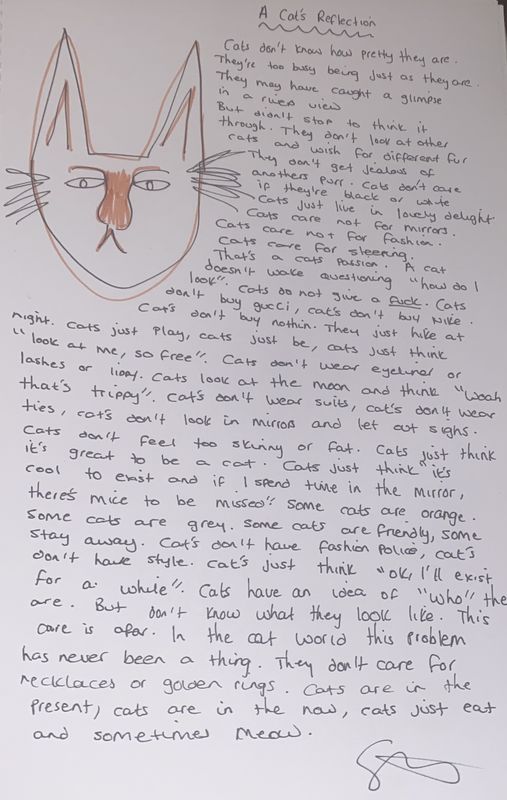 A Cat's Reflection
Cats don't know how pretty they are.
They're too busy being just as they are.
They may have caught a glimpse
in a rivers view
But didn't stop to think it
through. They don't look at other
cats and wish for different fur
They don't get jealous of
anothers purr. Cats don't care
if they're black or white
Cats just live in lovely delight
Cats care not for mirrors.
Cats care not for fashion.
Cats care for sleeping.
That's a cats passion. A cat
doesn't wake questioning "how do I
look". Cats do not give a fuck. Cats
don't buy gucci, cat's don't buy Nike.
Cat's don't buy nothin. They just hike at
night. Cats just play, cats just be, cats just think
"look at me, so free". Cats don't wear eyeliner or
lashes or lippy. Cats look at the moon and think "woah
that's trippy". Cat's don't wear suits, cat's don't wear
ties, cat's don't look in mirrors and let out sighs.
Cats don't feel too skinny or fat. Cats just think
it's great to be a cat. Cats just think "it's
cool to exist and if I spend time in the mirror,
there's mice to be missed" Some cats are orange.
Some cats are grey. Some cats are friendly, some
stay away. Cat's don't have fashion police, cat's
don't have style. Cat's just think "ok, I'll exist
for a while". Cats have an idea of "who" the
are. But don't know what they look like. This
care is afar. In the cat world this problem
has never been a thing. They don't care for
necklaces or golden rings. Cats are in the
present, cats are in the now, cats just eat
and sometimes meow.